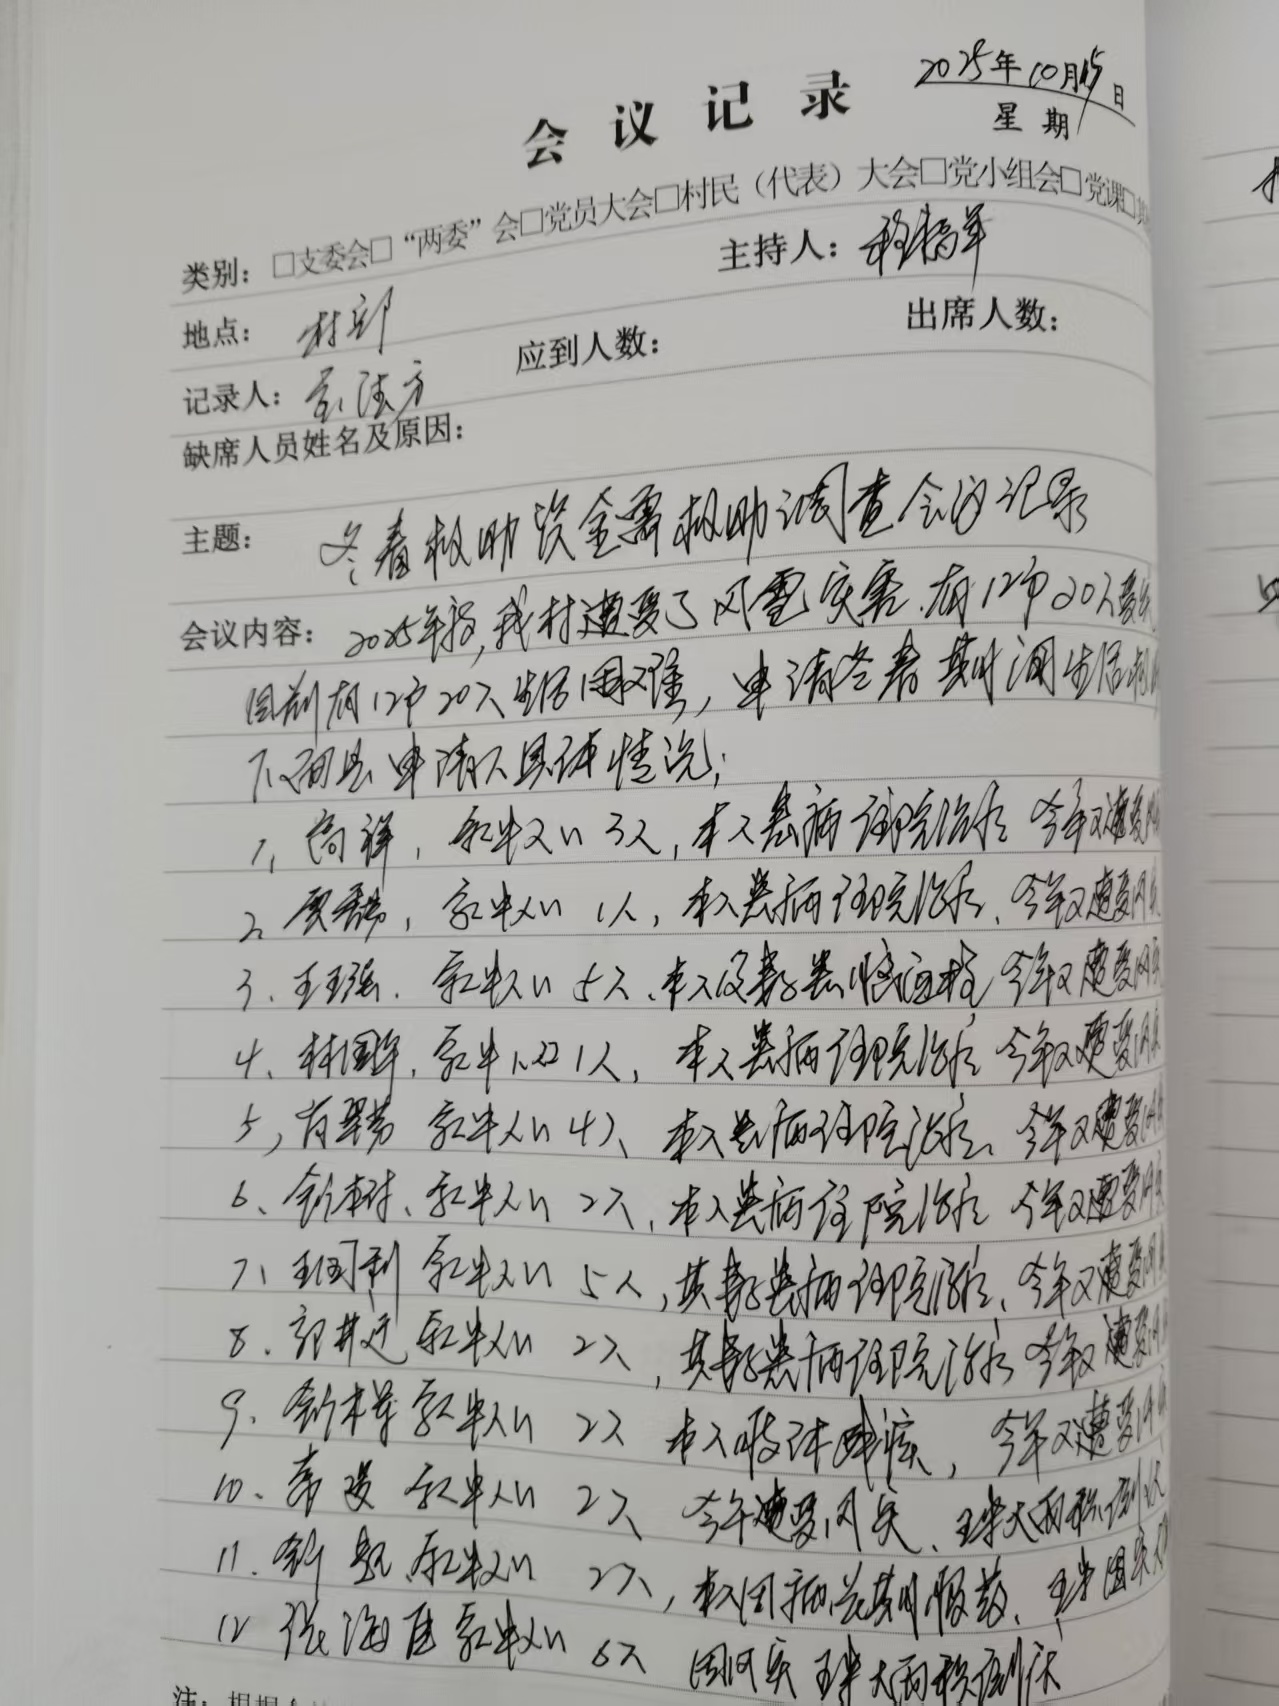 2025年10月15日
会议记录
星期
类别：□支委会□“两委”会□党员大会□村民（代表）大会□党小组会□党课□其
主持人：程福军
地点：村部
应到人数：
出席人数：
记录人：
缺席人员姓名及原因：
主题：冬春救助资金需救助调查会议记录
会议内容：2025年，我村遭受了风雹灾害。有12户20人受灾
目前有12户20人生活困难，申请冬春期间生活救
下面是申请人具体情况：
1、高祥，家中人口3人，本人患病住院治疗 今年又遭受风
2、，家中人口1人，本人患病住院治疗、今年又遭受风灾
3、王玉强、家中人口5人、本人及妻子患脑血栓，今年又遭受风灾
4、林国军，家中人口1人，本人患病住院治疗 今年又遭受风灾
5，肖翠芳 家中人口4人、本人患病住院治疗、今年又遭受风
6、舒本财、家中人口2人，本人患病住院治疗 今年又遭受风灾
7、王国利 家中人口5人，其妻子患病住院治疗、今年又遭受风
8、郭井廷 家中人口2人，其妻子患病住院治疗 今年又遭受风
9、舒本学 家中人口2人 本人肢体残疾，今年又遭受风
10、 家中人口2人 今年遭受风灾、玉米大面积倒伏
11、舒 家中人口2人，本人因病长期服药、玉米因灾大
12 张海 家中人口6人 因风灾 玉米大面积倒伏
注：根据